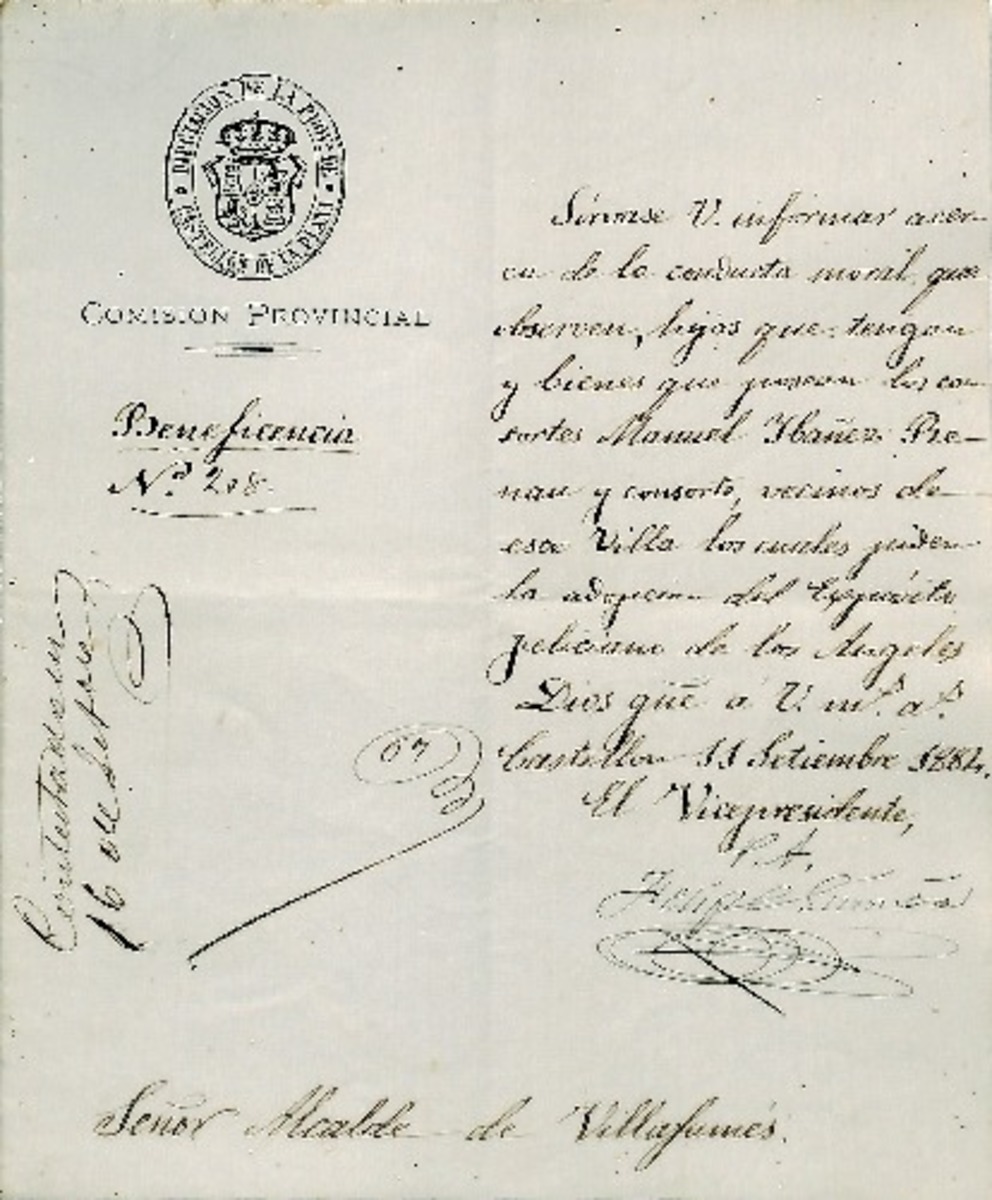 DIPUTACION DE LA PROVª DE
CASTELLON DE LA PLANA
COMISION PROVINCIAL
Beneficencia
Nº 208.
Contestado en
16 de Setbre
Sirvase V. informar acer-
ca de la conducta moral que
observen, hijos que tengan
y bienes que posean los con
sortes Manuel Ibañez Pre-
nau y consorte, vecinos de
esa Villa los cuales piden
la adopcion del Expósito
feliciano de los Angeles
Dios gūe á V. mˢ. aˢ.
Castellon 11 Setiembre 1884.
El Vicepresidente,
P. A.
Señor Alcalde de Villafamés.